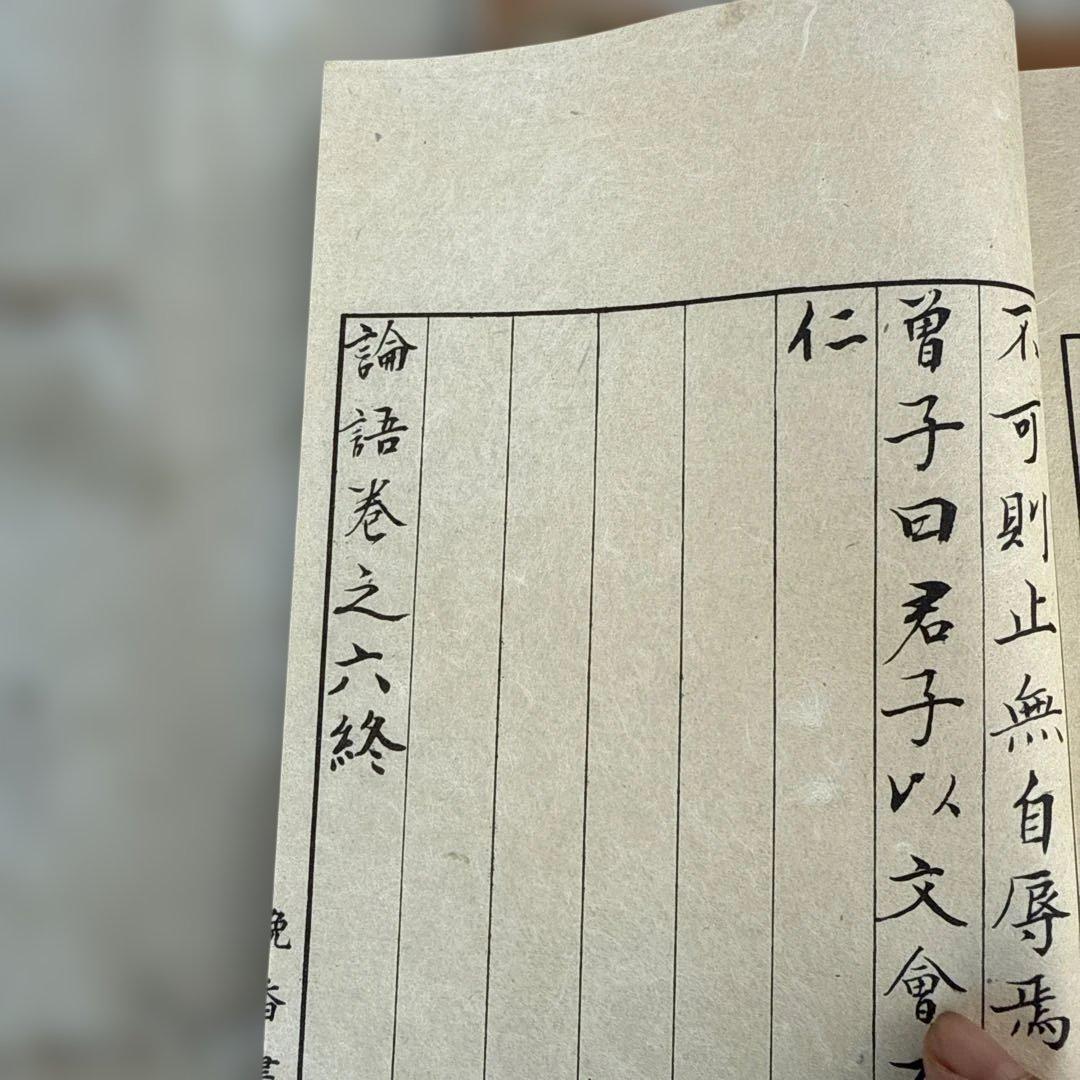 不可則止無自辱焉
曾子曰君子以文會
仁
論語卷之六終
晚香書